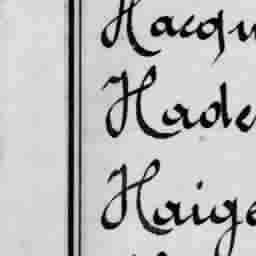 Hacqu
Hade
Haige